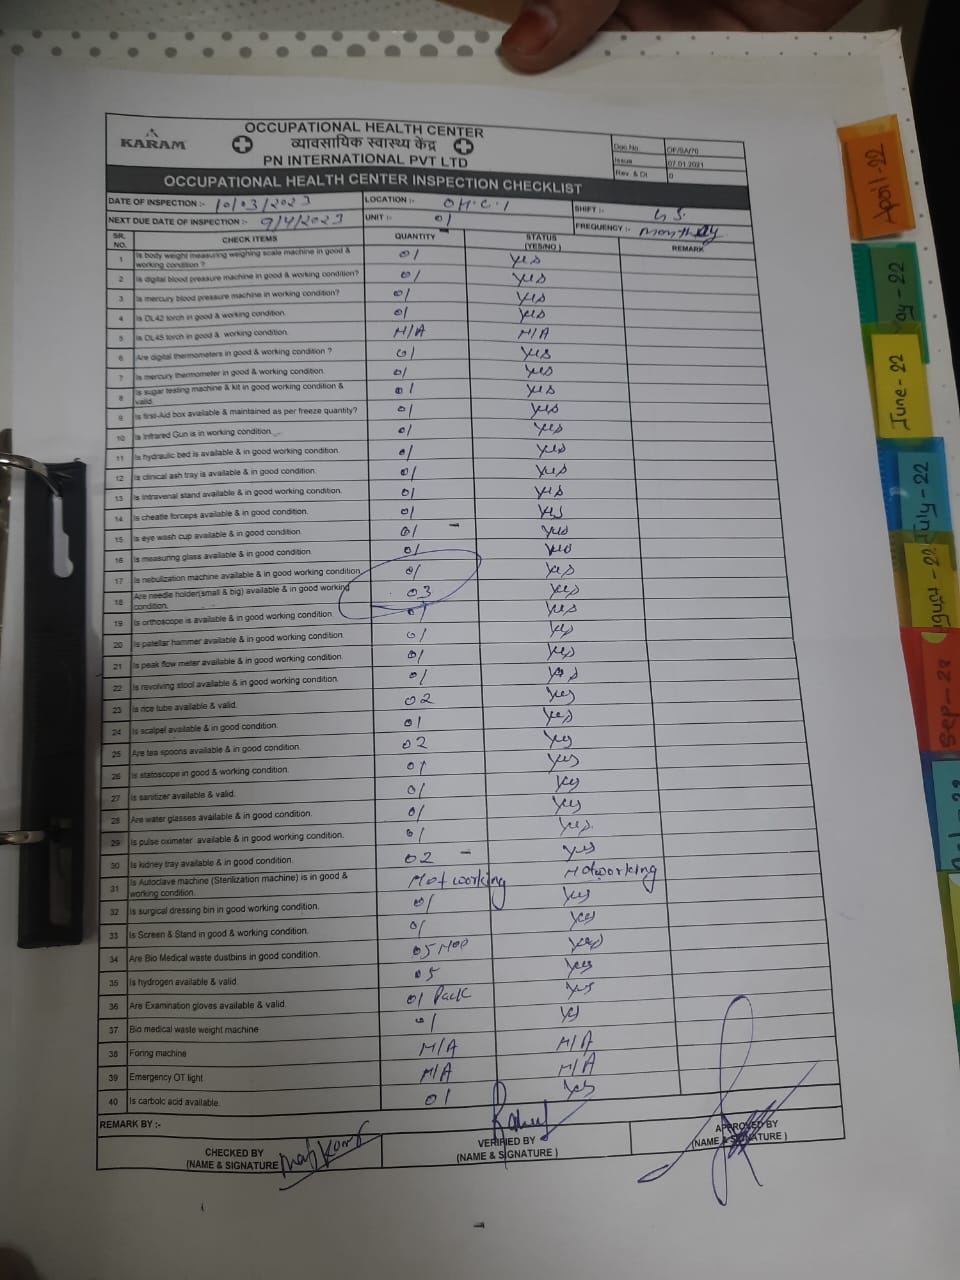 KARAM
OCCUPATIONAL HEALTH CENTER
व्यावसायिक स्वास्थ्य केंद्र
PN INTERNATIONAL PVT LTD
Doc.No OF/SA/70
Issue 07.01.2021
Rev. & Dt 0
OCCUPATIONAL HEALTH CENTER INSPECTION CHECKLIST
DATE OF INSPECTION :- 10/03/2023 LOCATION :- O.H.C.1 SHIFT :- G.S.
NEXT DUE DATE OF INSPECTION :- 9/4/2023 UNIT :- 01 FREQUENCY :- Monthly
SR. NO. CHECK ITEMS QUANTITY STATUS (YES/NO) REMARK
1 Is body weight measuring weighing scale machine in good & working condition ? 01 yes
2 Is digital blood pressure machine in good & working condition? 01 yes
3 Is mercury blood pressure machine in working condition? 01 yes
4 Is DL42 torch in good & working condition. 01 yes
5 Is DL45 torch in good & working condition. N/A N/A
6 Are digital thermometers in good & working condition ? 01 yes
7 Is mercury thermometer in good & working condition. 01 yes
8 Is sugar testing machine & kit in good working condition & valid. 01 yes
9 Is first-Aid box available & maintained as per freeze quantity? 01 yes
10 Is Infrared Gun is in working condition. 01 yes
11 Is hydraulic bed is available & in good working condition. 01 yes
12 Is clinical ash tray is available & in good condition. 01 yes
13 Is intravenal stand available & in good working condition. 01 yes
14 Is cheatle forceps available & in good condition. 01 yes
15 Is eye wash cup available & in good condition. 01 yes
16 Is measuring glass available & in good condition. 01 yes
17 Is nebulization machine available & in good working condition. 01 yes
18 Are needle holder(small & big) available & in good working condition. 03 yes
19 Is orthoscope is available & in good working condition. 01 yes
20 Is patellar hammer available & in good working condition. 01 yes
21 Is peak flow meter available & in good working condition. 01 yes
22 Is revolving stool available & in good working condition. 01 yes
23 Is rice tube available & valid. 02 yes
24 Is scalpel available & in good condition. 01 yes
25 Are tea spoons available & in good condition. 02 yes
26 Is statoscope in good & working condition. 01 yes
27 Is sanitizer available & valid. 01 yes
28 Are water glasses available & in good condition. 01 yes
29 Is pulse oximeter available & in good working condition. 01 yes
30 Is kidney tray available & in good condition. 02 yes
31 Is Autoclave machine (Sterilization machine) is in good & working condition. Not working Not working
32 Is surgical dressing bin in good working condition. 01 yes
33 Is Screen & Stand in good & working condition. 01 yes
34 Are Bio Medical waste dustbins in good condition. 05 yes
35 Is hydrogen available & valid. 05 yes
36 Are Examination gloves available & valid. 01 Pack yes
37 Bio medical waste weight machine 01 yes
38 Foring machine N/A N/A
39 Emergency OT light N/A N/A
40 Is carbolc acid available. 01 yes
REMARK BY :-
CHECKED BY (NAME & SIGNATURE
VERIFIED BY (NAME & SIGNATURE )
APPROVED BY (NAME & SIGNATURE )
April-22
May-22
June-22
July-22
August-22
Sep-22